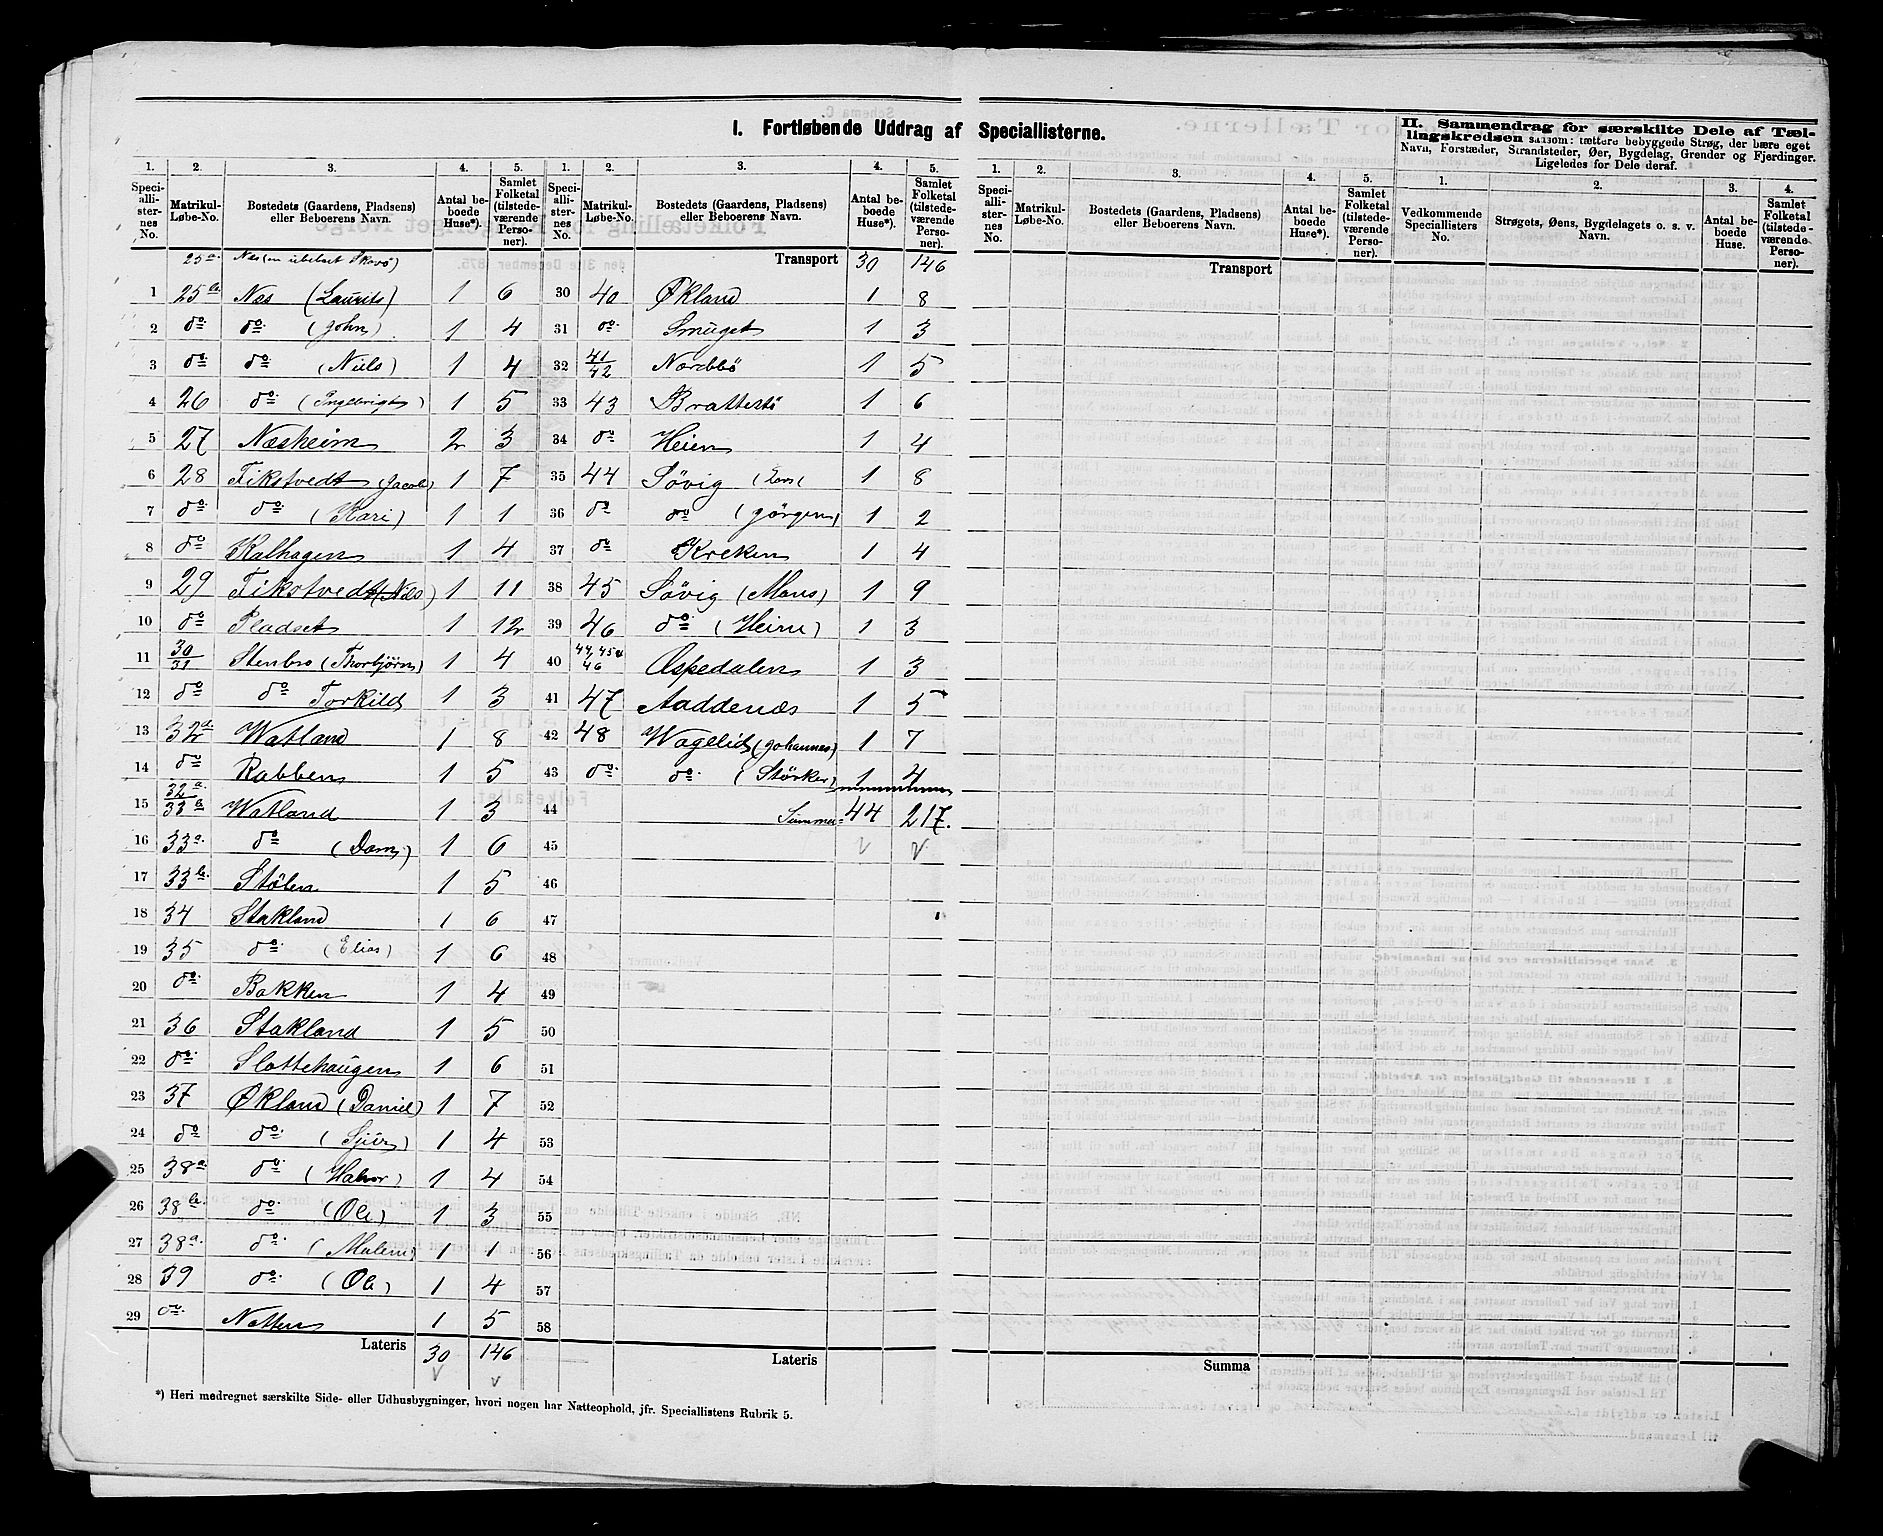 I. Fortløbende Uddrag af Speciallisterne.
II. Sammendrag for særskilte Dele af Tæl-
lingskredsen saasom: tættere bebyggede Strøg, der bære eget
Navn, Forstæder, Strandsteder, Øer, Bygdelag, Grender og Fjerdinger.
Ligeledes for Dele deraf.
1. 2. 3. 4. 5. 1. 2. 3. 4. 5. 1. 2. 3. 4. 5. 1. 2. 3. 4.
Speciallisternes No. Matrikul-Løbe-No. Bostedets (Gaardens, Pladsens) eller Beboerens Navn. Antal beboede Huse*). Samlet Folketal (tilstedeværende Personer).
Speciallisternes No. Matrikul-Løbe-No. Bostedets (Gaardens, Pladsens) eller Beboerens Navn. Antal beboede Huse*). Samlet Folketal (tilstedeværende Personer).
Speciallisternes No. Matrikul-Løbe-No. Bostedets (Gaardens, Pladsens) eller Beboerens Navn. Antal beboede Huse*). Samlet Folketal (tilstedeværende Personer).
Vedkommende Speciallisters No. Strøgets, Øens, Bygdelagets o. s. v. Navn. Antal beboede Huse. Samlet Folketal (tilstedeværende Personer).
25a. Næs
1 25b. Næs (Laurits) 1 6
2 do do (John) 1 4
3 do do (Niels) 1 4
4 26 do (Ingebrigt) 1 5
5 27 Næsheim 2 3
6 28 Tikstvedt (Jacob) 1 7
7 do do (Kari) 1 1
8 do Kalhagen 1 4
9 29 Tikstvedt (Nils) 1 11
10 do Pladset 1 12
11 30/31 Stenbro (Thorbjørn) 1 4
12 do do Torkild 1 3
13 32a Watland 1 8
14 do Rabben 1 5
15 32a./33b Watland 1 3
16 33a. do (Dam) 1 6
17 33b. Stølen 1 5
18 34 Stakland 1 6
19 35 do (Elias) 1 6
20 do Bakken 1 4
21 36 Stakland 1 5
22 do Slottehaugen 1 6
23 37 Økland (Daniel) 1 7
24 do do (Sjur) 1 4
25 38a. do (Halvor) 1 4
26 38b. do (Ole) 1 3
27 38a. do (Malene) 1 1
28 39 do (Ole) 1 4
29 do Notten 1 5
Lateris 30 146
Transport 30 146
30 40 Økland 1 8
31 do Smuget 1 3
32 41/42 Nordbö 1 5
33 43 Brattestö 1 6
34 do Heien 1 4
35 44 Søvig (Lars) 1 8
36 do do (Jörgen) 1 2
37 do Kreken 1 4
38 45 Søvig (Mons) 1 9
39 46 do (Heine) 1 3
40 44, 45 & 46 Ospedalen 1 3
41 47 Aaddenæs 1 5
42 48 Wagelid (Johannes) 1 7
43 do do (Störker) 1 4
44 Summa= 44 217.
45
46
47
48
49
50
51
52
53
54
55
56
57
58
Lateris
Transport
Summa
*) Heri medregnet særskilte Side- eller Udhusbygninger, hvori nogen har Natteophold, jfr. Speciallistens Rubrik 5.